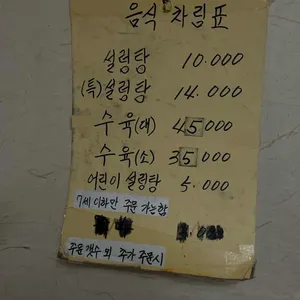 음식 차림표
설렁탕 10.000
(특)설렁탕 14.000
수육(대) 45000
수육(소) 35000
어린이 설렁탕 5.000
7세 이하만 주문 가능함
주문 갯수 외 추가 주문시